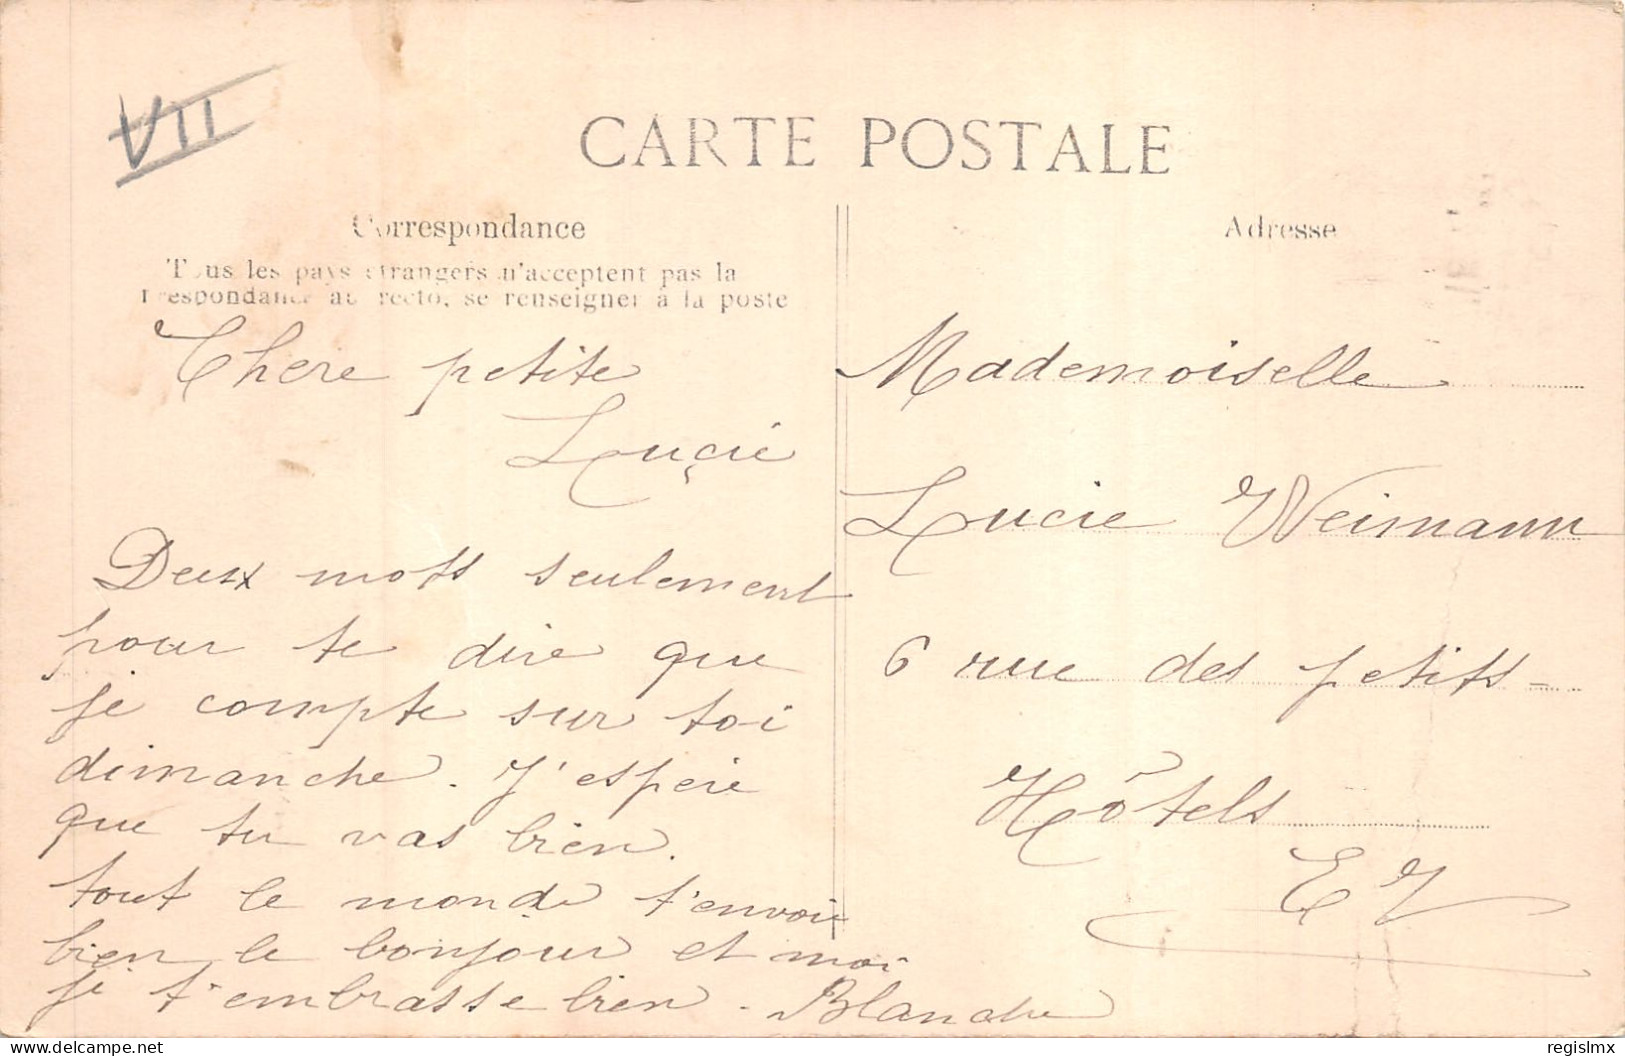 VII
CARTE POSTALE
Correspondance
Tous les pays étrangers n'acceptent pas la
correspondance au recto, se renseigner à la poste
Chere petite
Luçie
Deux mots seulement
pour te dire que
je compte sur toi
dimanche. J'espère
que tu vas bien.
tout le monde t'envoie
bien le bonjour et moi
je t'embrasse bien. Blanche
Adresse
Mademoiselle
Lucie Weimann
6 rue des petits-
Hôtels
EV
regislmx